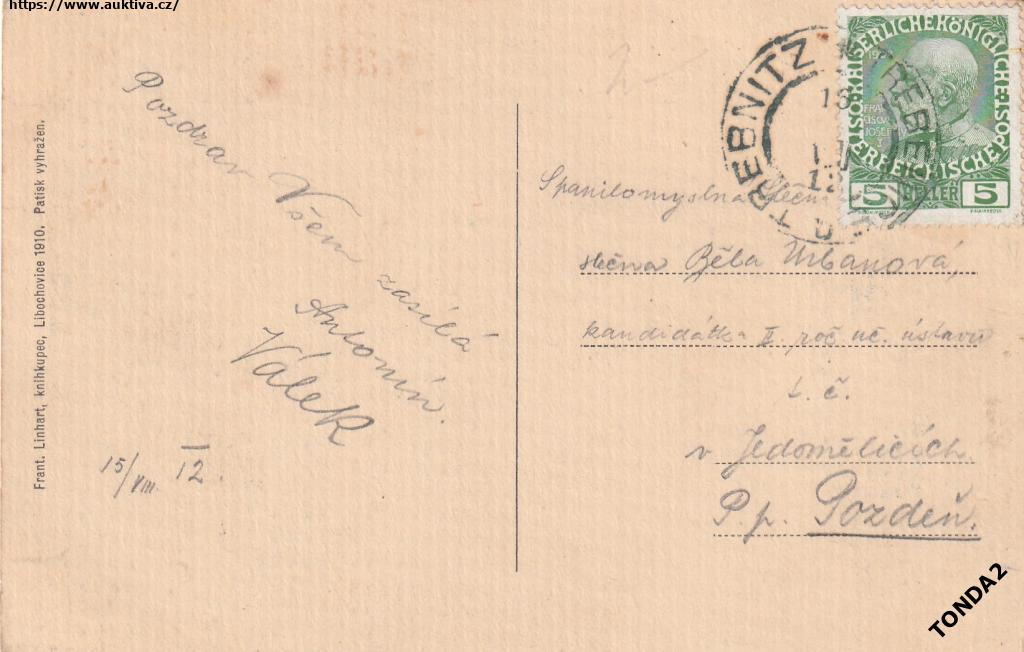 https://www.auktiva.cz/
Frant. Linhart, knihkupec, Libochovice 1910. Patisk vyhražen.
Pozdrav Všem zasílá
Antonín
Válek
15/VIII. 12.
TREBNITZ
KAISERLICHE KÖNIGLICHE
ÖSTERREICHISCHE POST
5 HELLER 5
Spanilomyslná slečna
slečna Běla Urbanová,
kandidátka II. roč. uč. ústavu
t. č.
v Jedomělicích
P. p. Pozdeň.
TONDA2